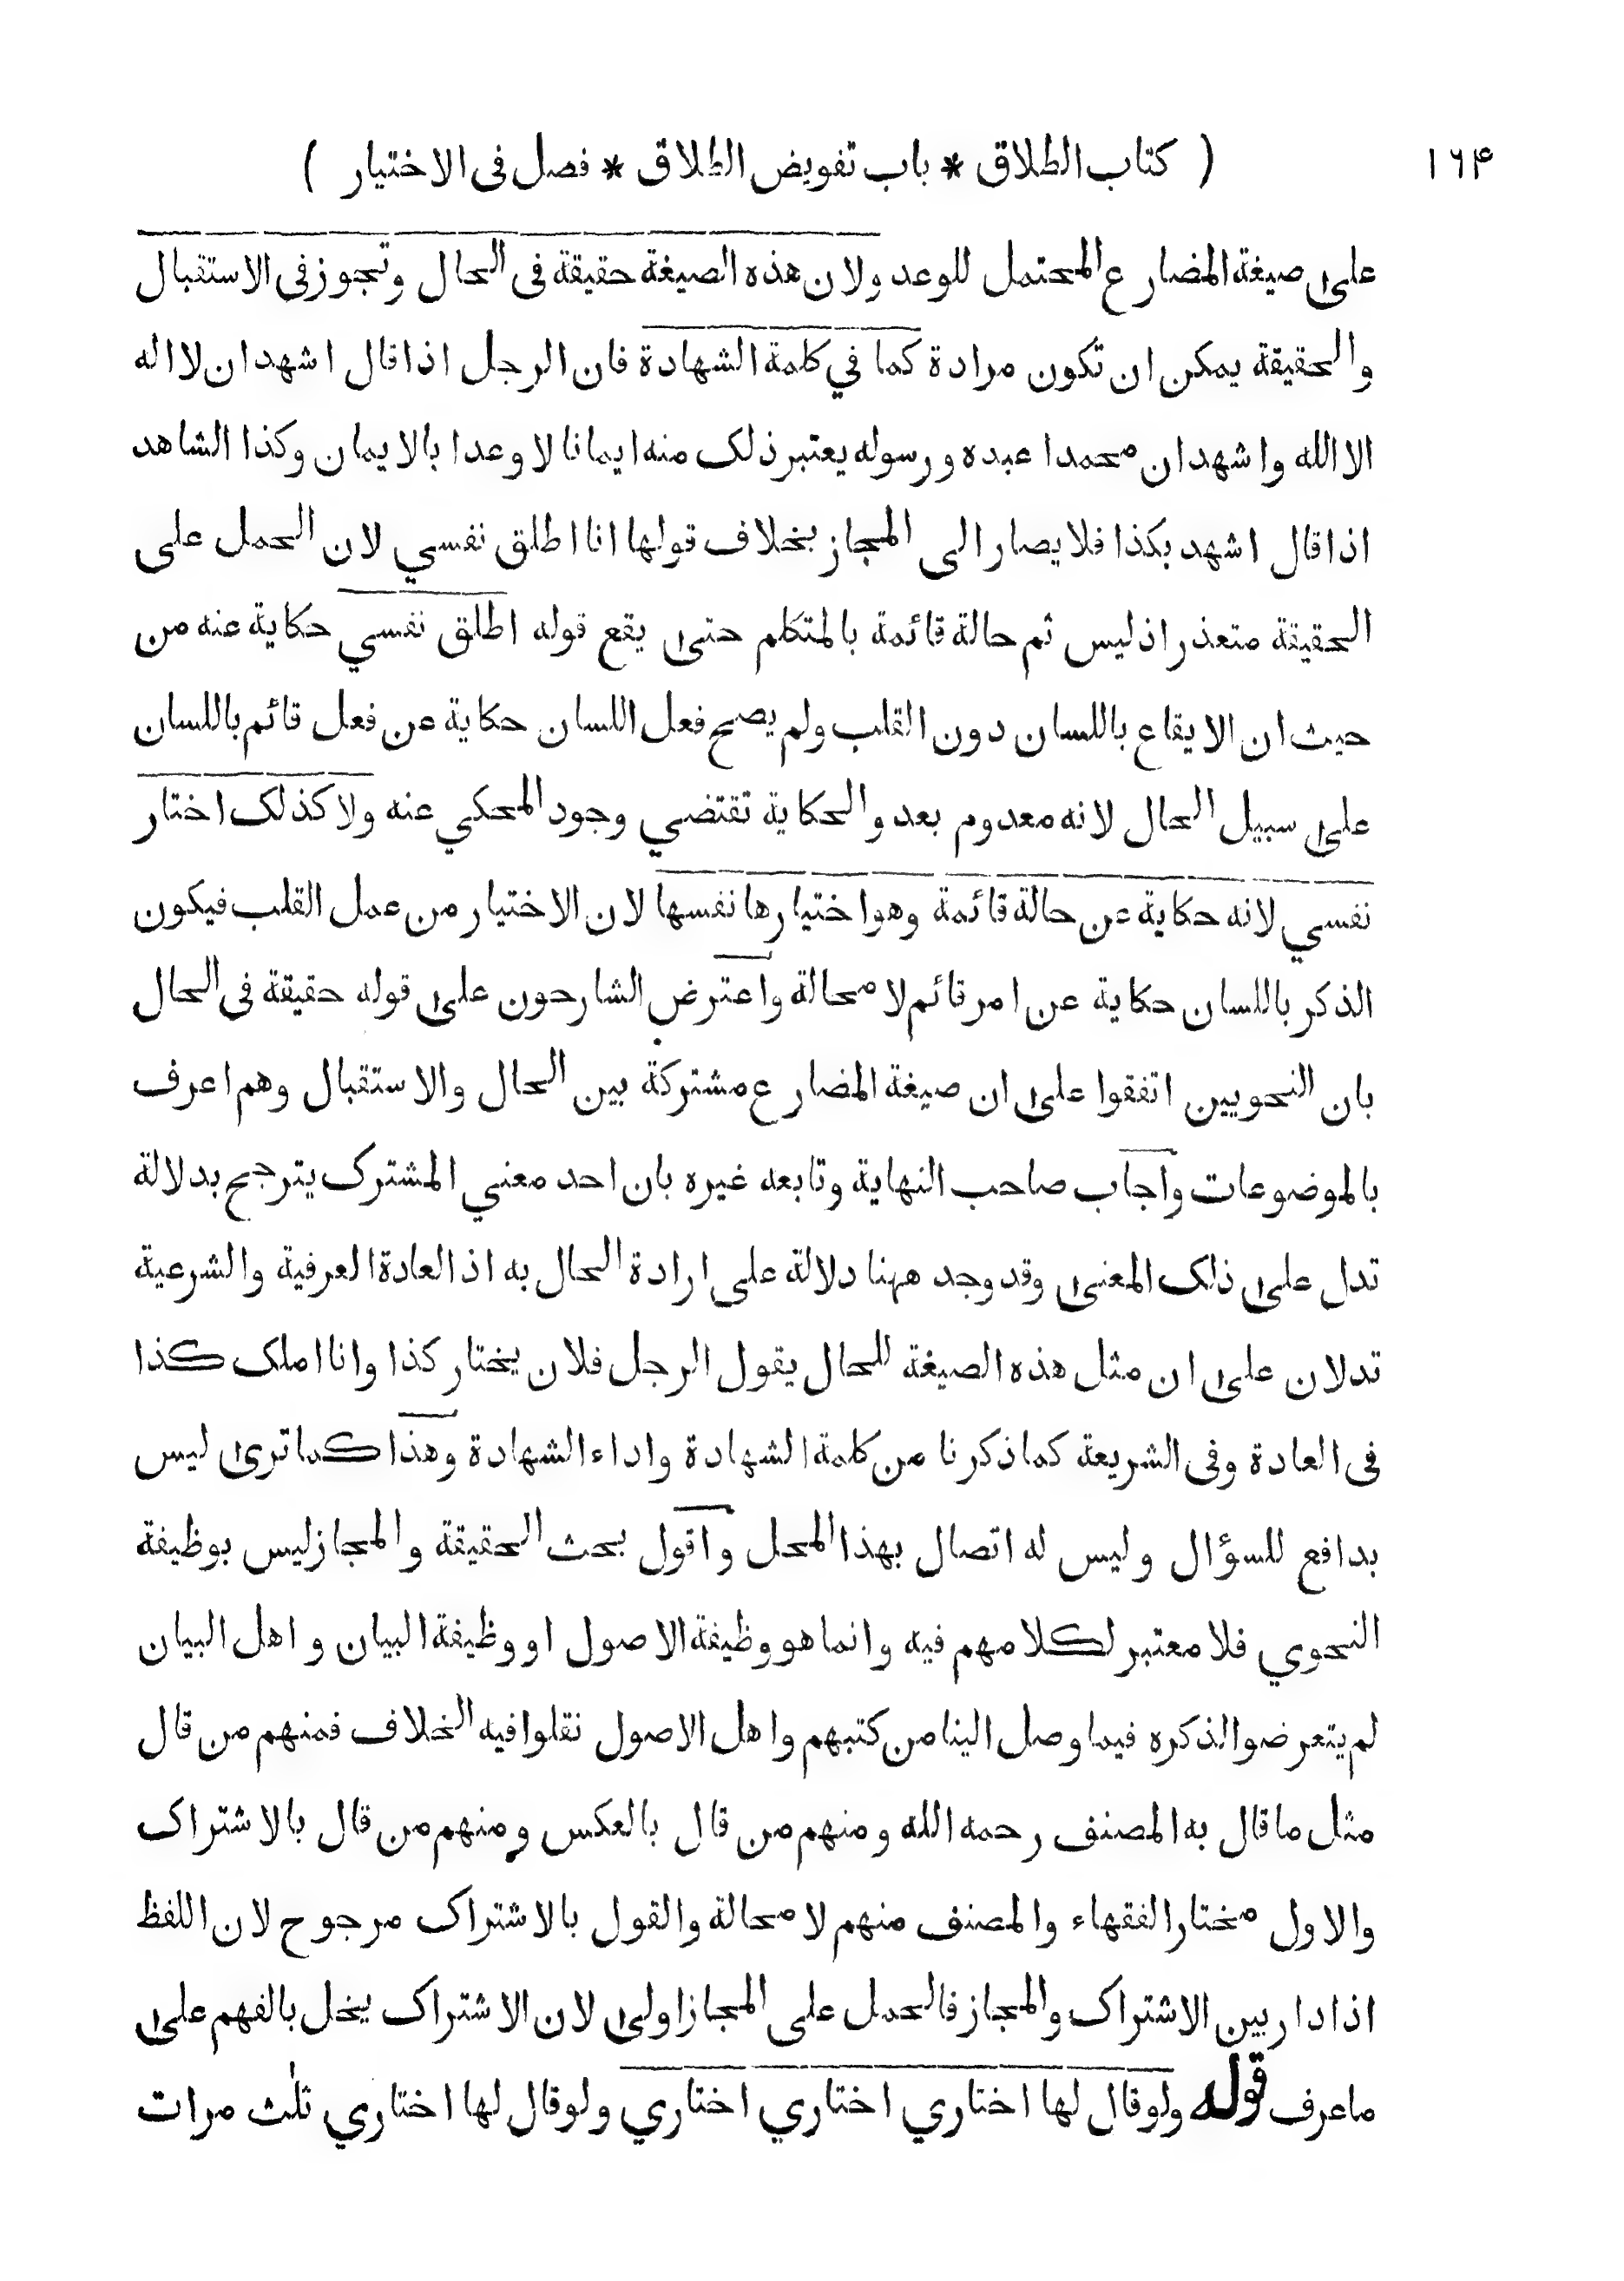 ١٦۴
( كتاب الطلاق * باب تفويض الطلاق * فصل فى الاختيار )
على صيغة المضارع المحتمل للوعد ولان هذه الصيغة حقيقة فى الحال وتجوز فى الاستقبال
والحقيقة يمكن ان تكون مرادة كما في كلمة الشهادة فان الرجل اذا قال اشهد ان لا اله
الا الله واشهد ان محمدا عبده ورسوله يعتبر ذلك منه ايمانا لا وعدا بالايمان وكذا الشاهد
اذا قال اشهد بكذا فلا يصار الى المجاز بخلاف قولها انا اطلق نفسي لان الحمل على
الحقيقة متعذر اذ ليس ثم حالة قائمة بالمتكلم حتى يقع قوله اطلق نفسي حكاية عنه من
حيث ان الايقاع باللسان دون القلب ولم يصح فعل اللسان حكاية عن فعل قائم باللسان
على سبيل الحال لانه معدوم بعد والحكاية تقتضي وجود المحكي عنه ولا كذلك اختار
نفسي لانه حكاية عن حالة قائمة وهو اختيارها نفسها لان الاختيار من عمل القلب فيكون
الذكر باللسان حكاية عن امر قائم لا محالة واعترض الشارحون على قوله حقيقة فى الحال
بان النحويين اتفقوا على ان صيغة المضارع مشتركة بين الحال والاستقبال وهم اعرف
بالموضوعات واجاب صاحب النهاية وتابعه غيره بان احد معني المشترك يترجح بدلالة
تدل على ذلك المعنى وقد وجد ههنا دلالة على ارادة الحال به اذ العادة العرفية والشرعية
تدلان على ان مثل هذه الصيغة للحال يقول الرجل فلان يختار كذا وانا املك كذا
فى العادة وفى الشريعة كما ذكرنا من كلمة الشهادة واداء الشهادة وهذا كما ترى ليس
بدافع للسؤال وليس له اتصال بهذا المحل واقول بحث الحقيقة والمجاز ليس بوظيفة
النحوي فلا معتبر لكلامهم فيه وانما هو وظيفة الاصول او وظيفة البيان واهل البيان
لم يتعرضوا لذكره فيما وصل الينا من كتبهم واهل الاصول نقلوا فيه الخلاف فمنهم من قال
مثل ما قال به المصنف رحمه الله ومنهم من قال بالعكس ومنهم من قال بالاشتراك
والاول مختار الفقهاء والمصنف منهم لا محالة والقول بالاشتراك مرجوح لان اللفظ
اذا دار بين الاشتراك والمجاز فالحمل على المجاز اولى لان الاشتراك يخل بالفهم على
ما عرف قوله ولو قال لها اختاري اختاري اختاري ولو قال لها اختاري ثلث مرات